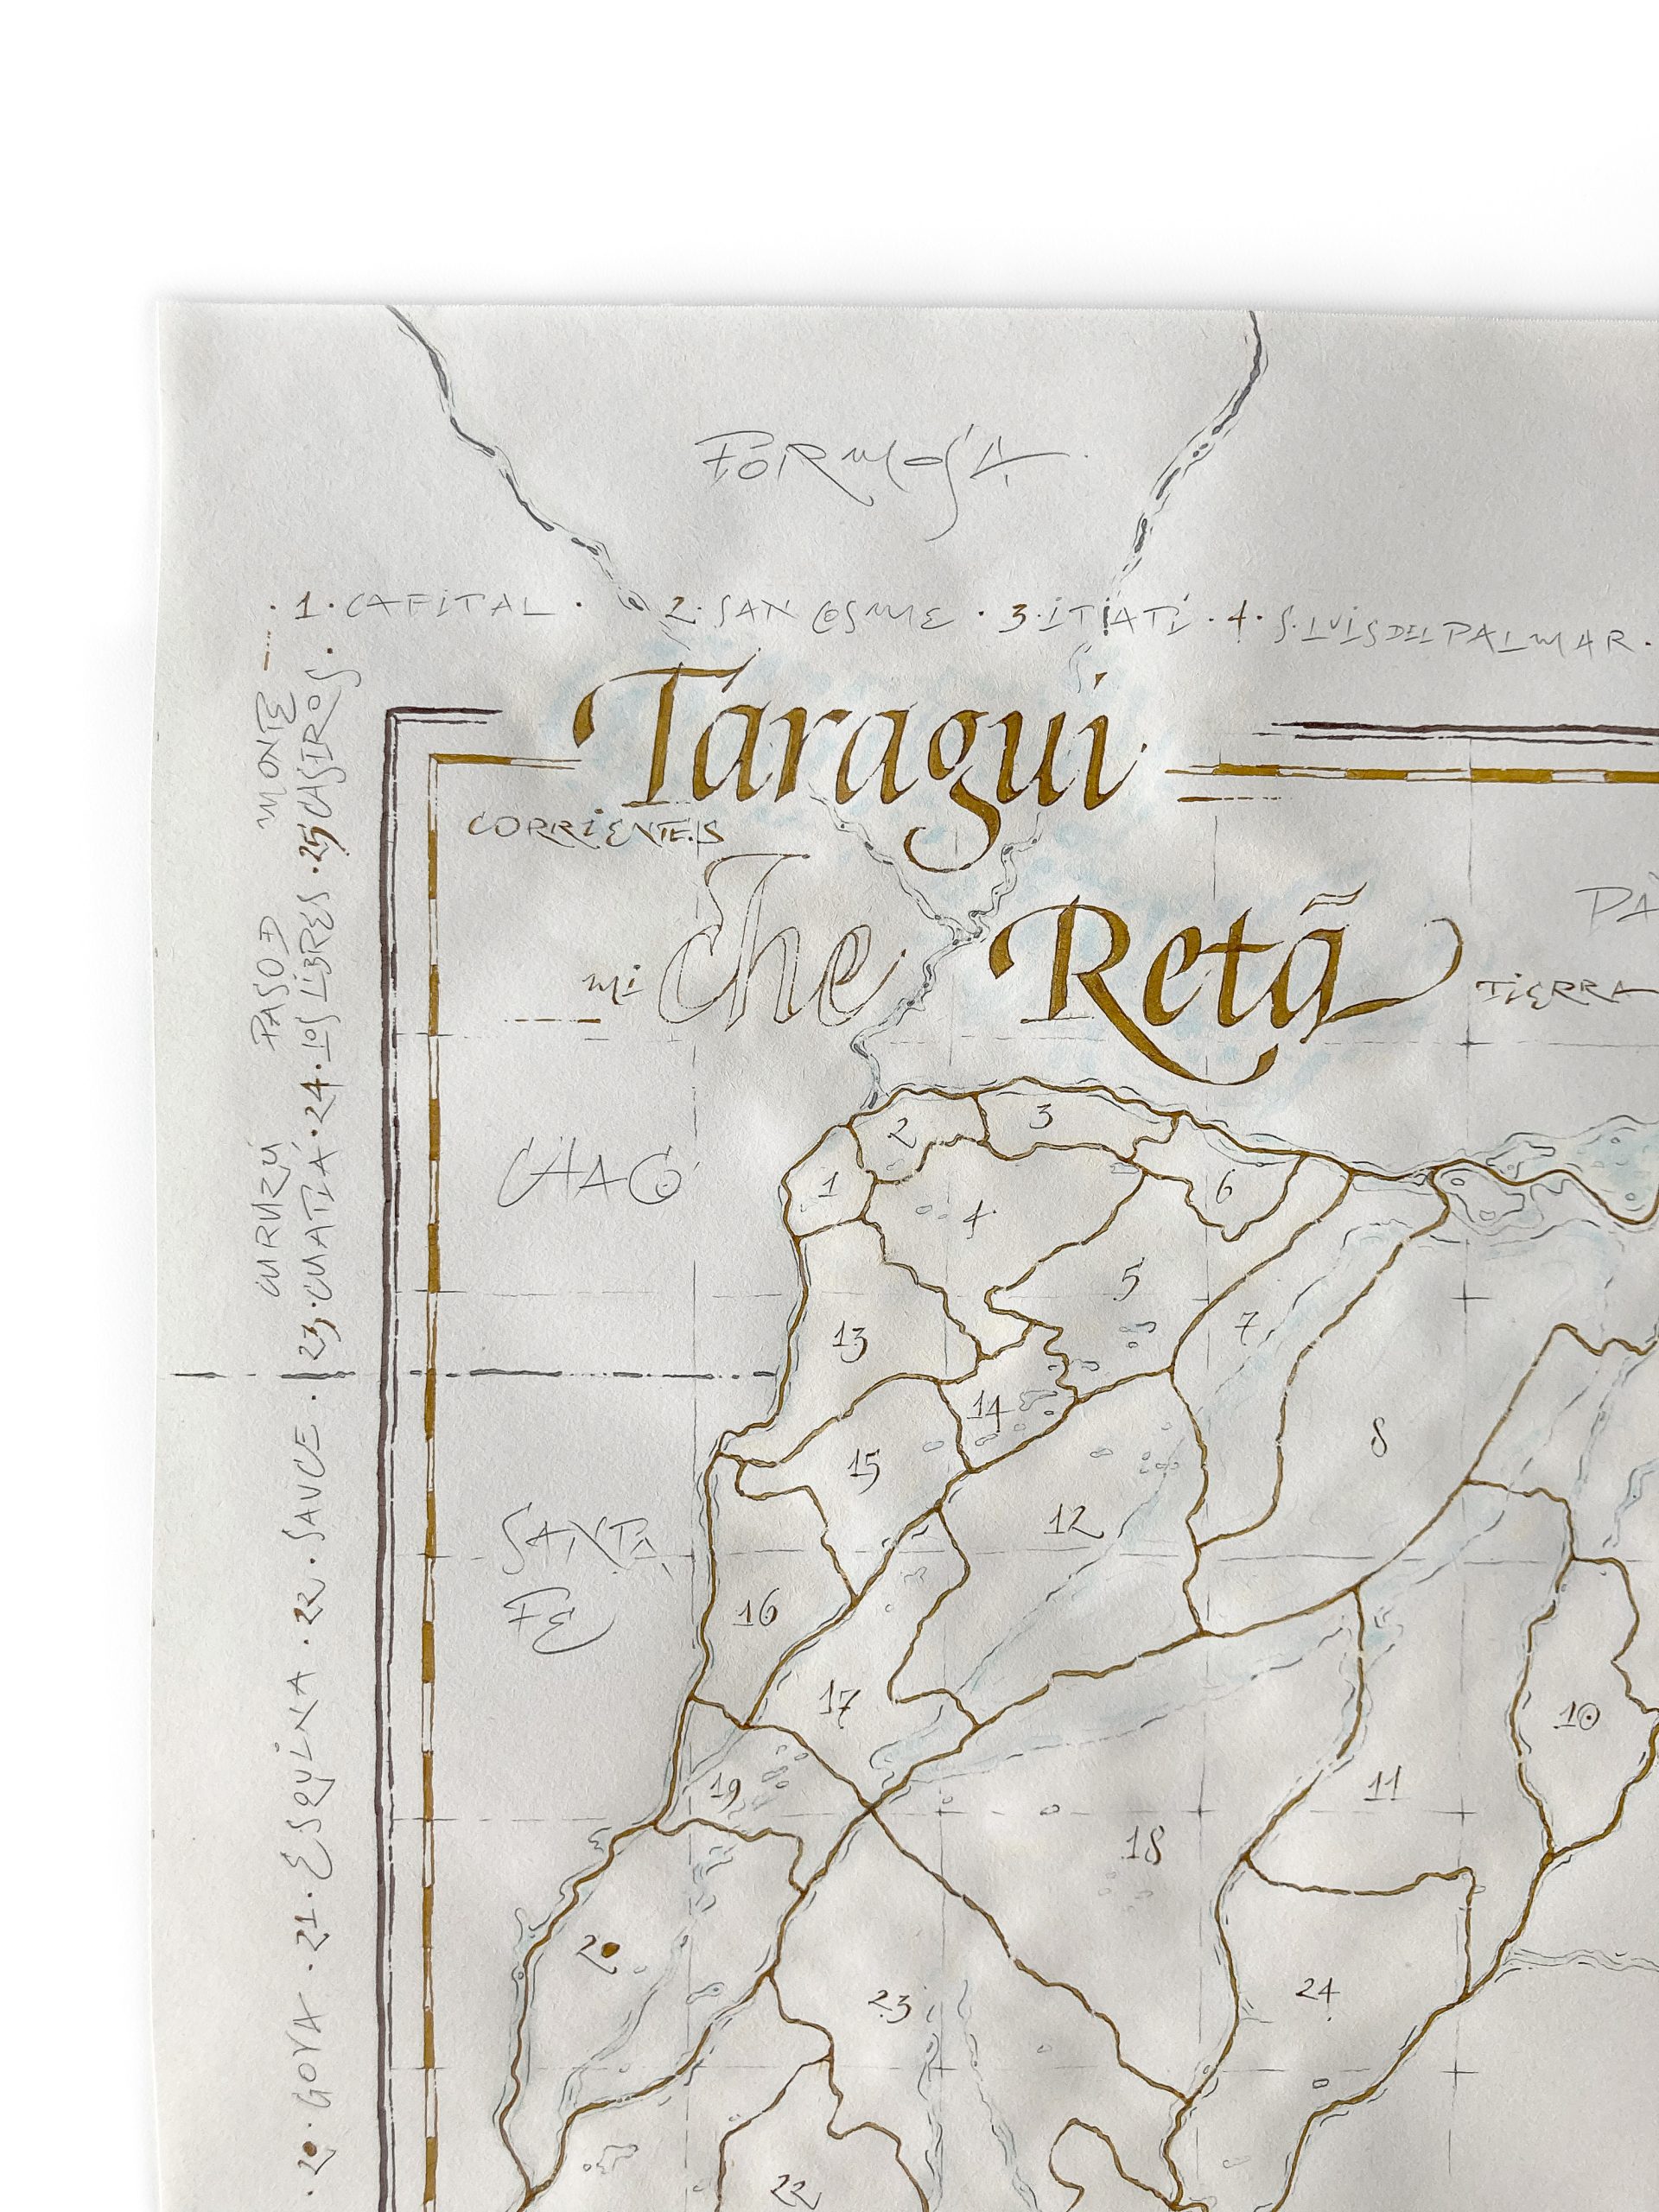 FORMOSA
· 1 · CAPITAL · 2 · SAN COSME · 3 · ITATÍ · 4 · S. LUIS DEL PALMAR ·
Taragui
CORRIENTES
mi Che Retã TIERRA
PA
CHACO
SANTA
FE
2
3
1
6
4
5
7
13
14
8
15
12
16
17
10
19
11
18
20
24
23
22
· 20 · GOYA · 21 · ESQUINA · 22 · SAUCE · 23 · CURUZÚ CUATIÁ · 24 · PASO D LOS LIBRES · 25 MONTE CASEROS ·